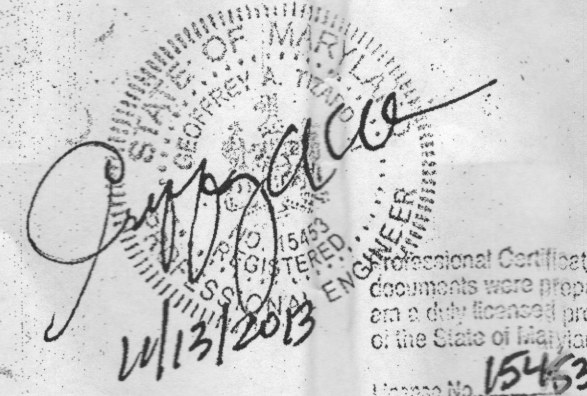 STATE OF MARYLAND
GEOFFREY A.
NO. 15453
REGISTERED
PROFESSIONAL ENGINEER
11/13/2013
Professional Certificat
documents were prep
am a duly licensed pr
of the State of Marylan
License No. 15453